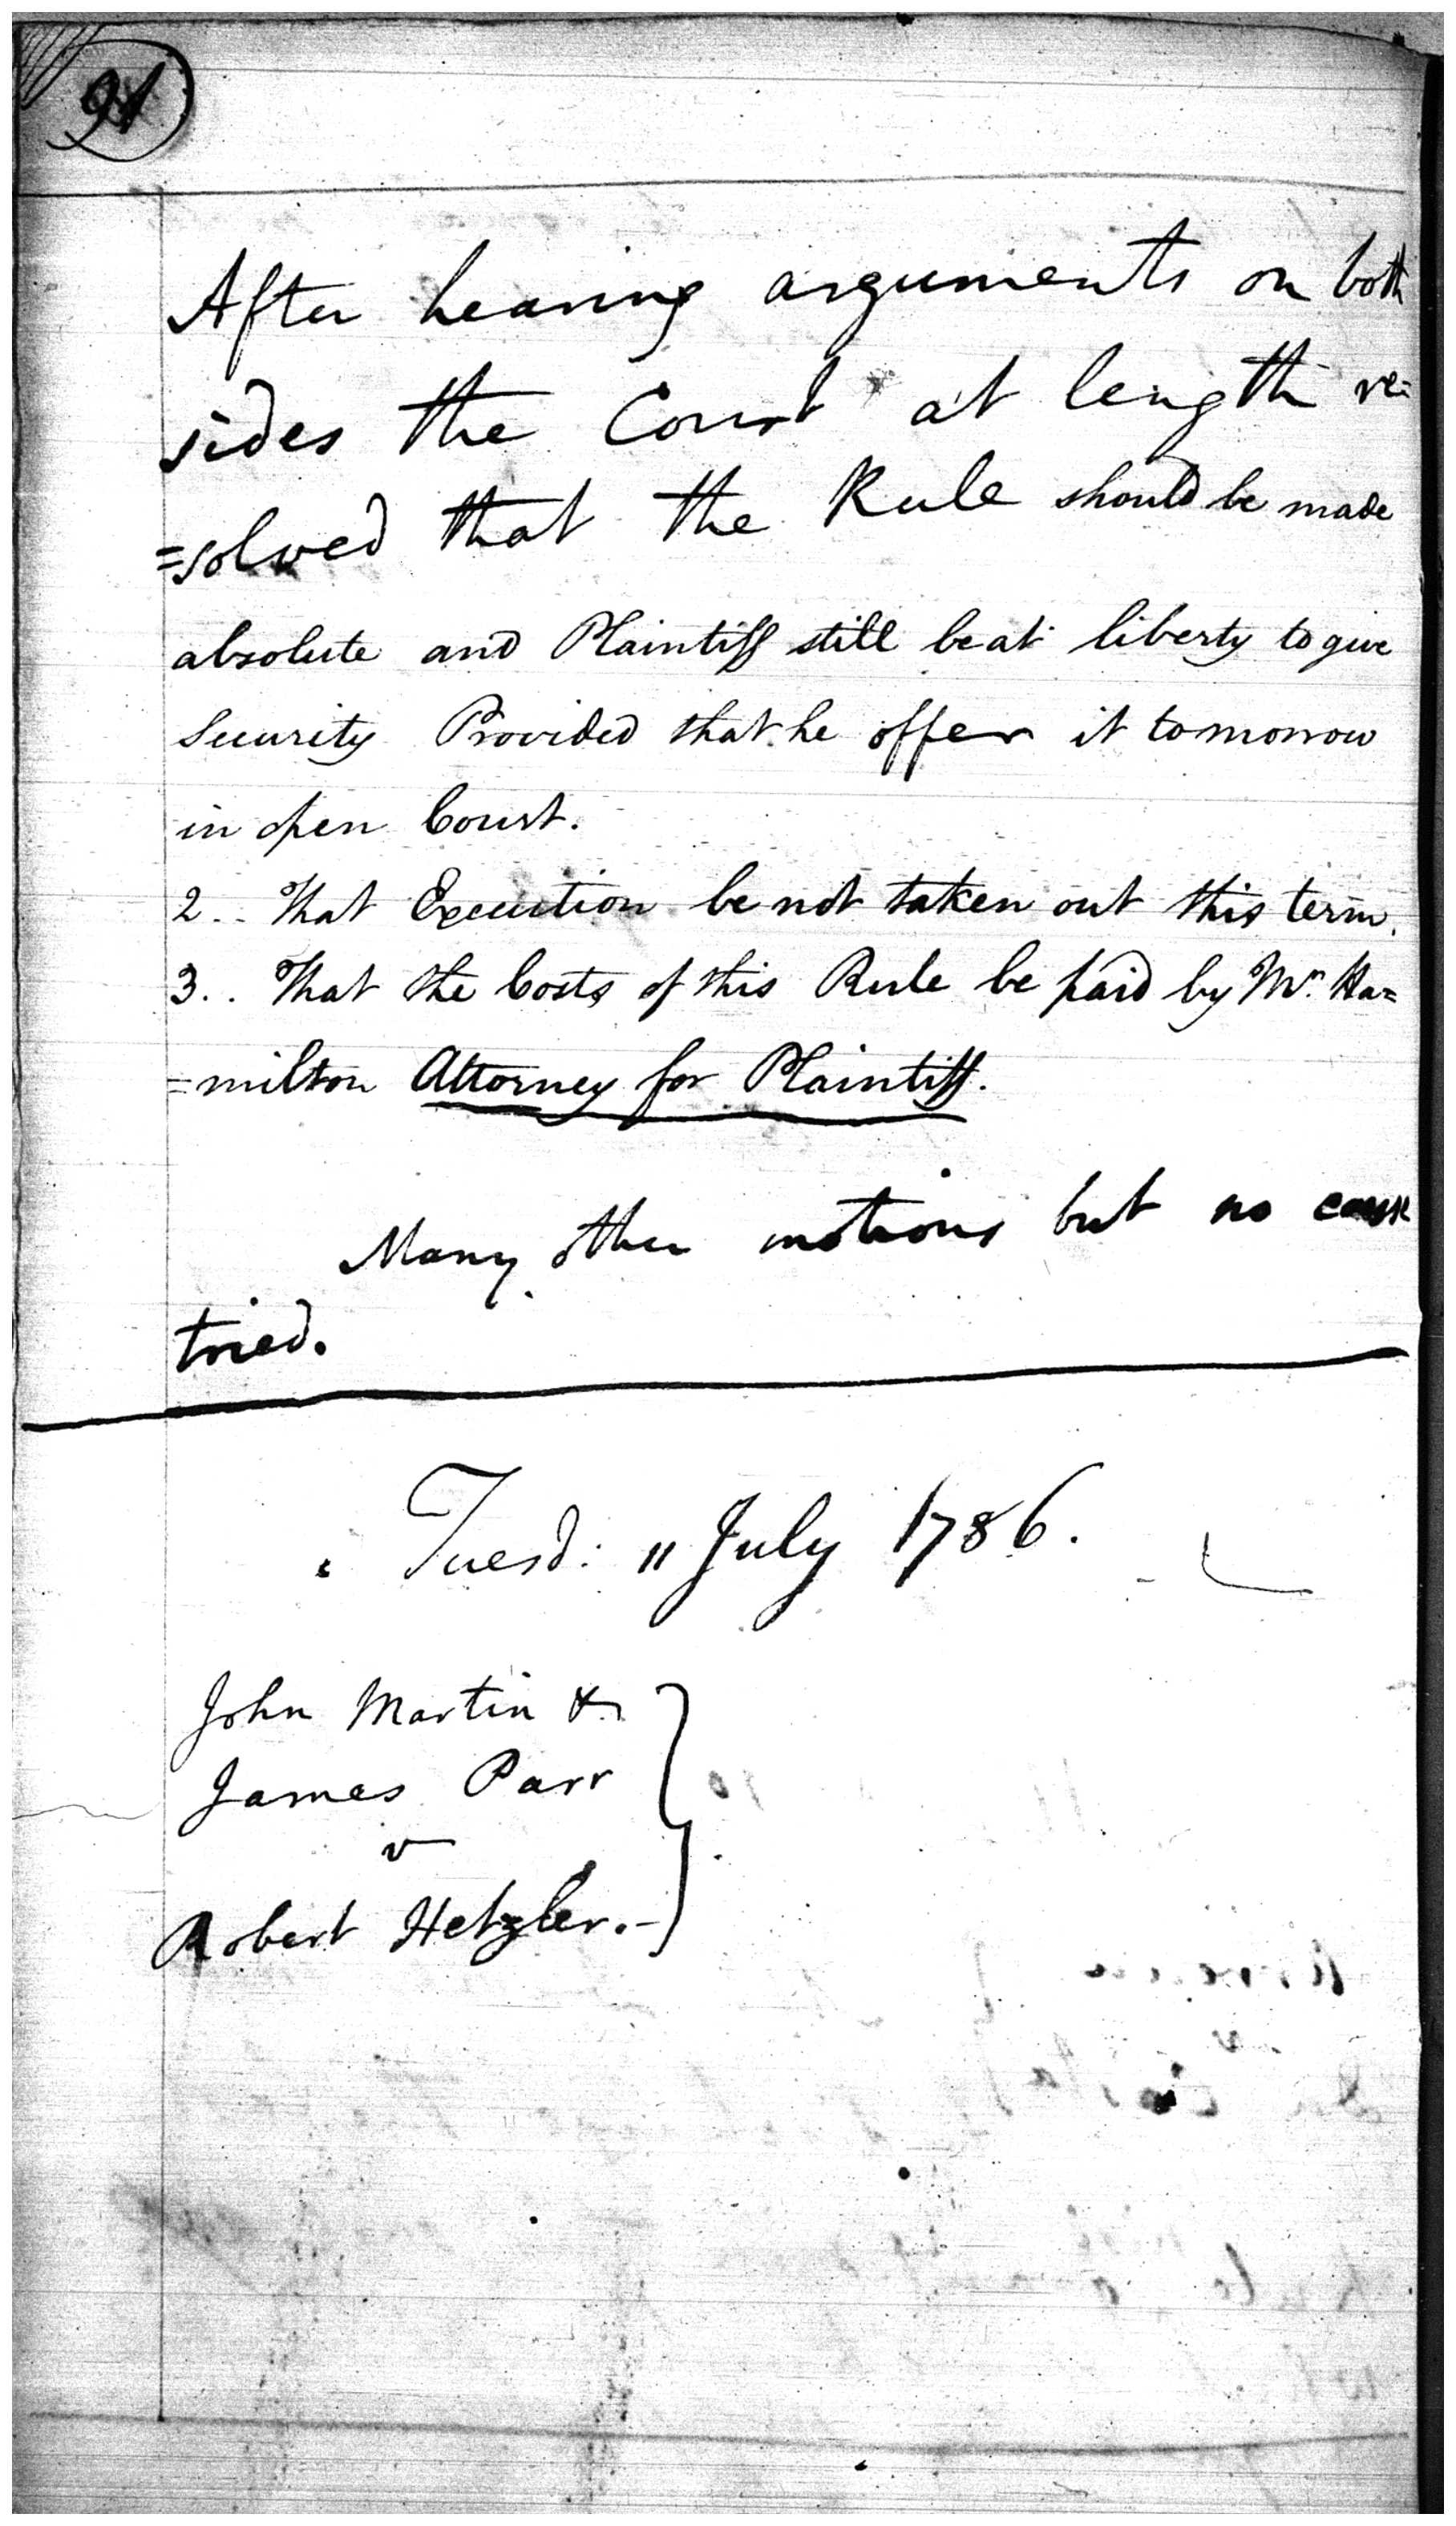 91
After hearing arguments on both
sides the Court at length re=
=solved that the Rule should be made
absolute and Plaintiff still be at liberty to give
Security Provided that he offer it tomorrow
in open Court.
2.. That Execution be not taken out this term.
3.. That the Costs of this Rule be paid by Mr. Ha=
=milton Attorney for Plaintiff.
Many other motions but no cause
tried.
Tuesd: 11 July 1786.
John Martin &
James Parr
v
Robert Hetzler.-